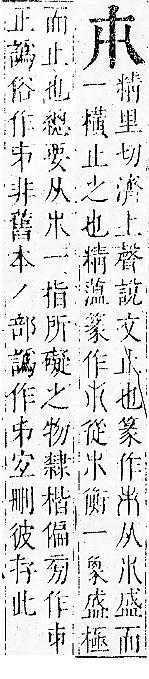 𠂔
精里切濟上聲說文止也篆作从𣎵盛而
一橫止之也精薀篆作從𣎵衡一象盛極
而止也總要从𣎵一指所礙之物隸楷偏旁作
正譌俗作非舊本丿部譌作宐刪彼存此